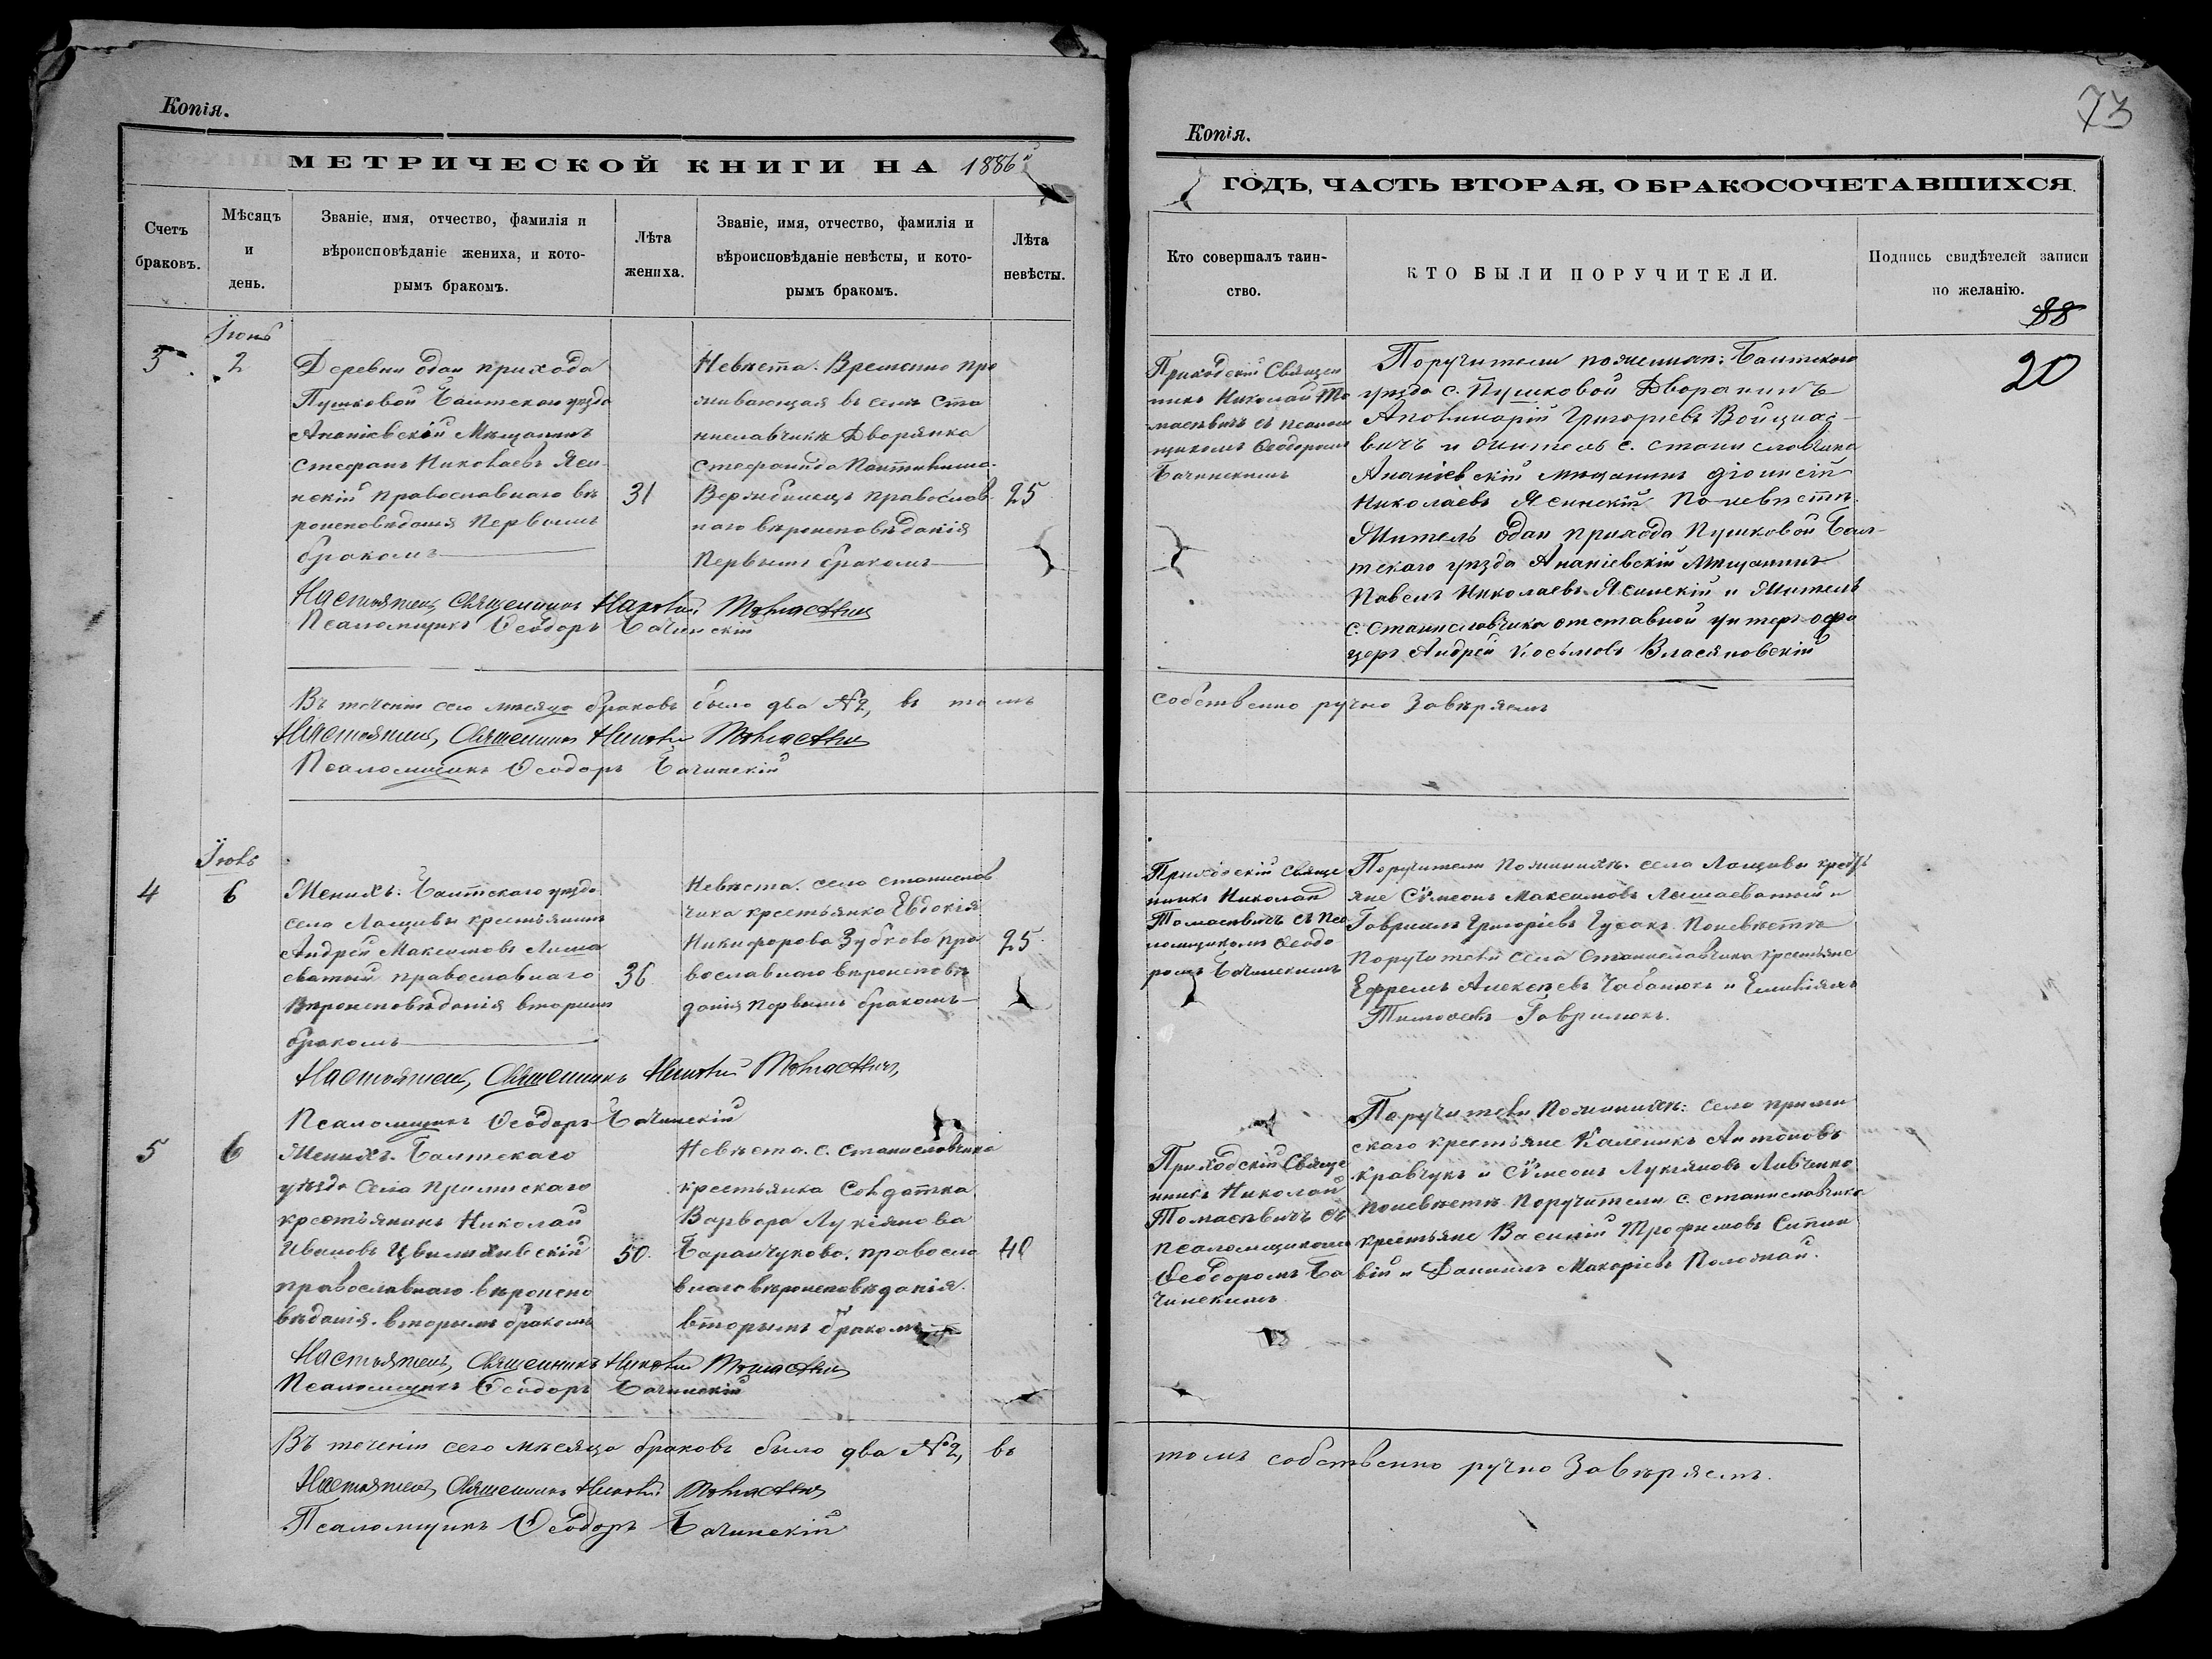 Копія.
МЕТРИЧЕСКОЙ КНИГИ НА 1886й
Счетъ браковъ.
Мѣсяцъ и день.
Званіе, имя, отчество, фамилія и
вѣроисповѣданіе жениха, и кото-
рымъ бракомъ.
Лѣта жениха.
Званіе, имя, отчество, фамилія и
вѣроисповѣданіе невѣсты, и кото-
рымъ бракомъ.
Лѣта невѣсты.
Іюнь
3
2
Деревни Одаи прихода
Пушковой Балтскаго уѣзда
Ананіевскій Мѣщанинъ
Стефанъ Николаевъ Ясин-
нскій православнаго вѣ
роисповѣданія Первымъ
бракомъ
31
Невѣста. Временно про
живающая въ селѣ Ста
ниславчикѣ Дворянка
Стефанида
православ
наго вѣроисповѣданія
Первымъ бракомъ
25
Настоятель, Священникъ Николай Томасевичъ
Псаломщикъ Ѳеодоръ Бачинскій
Въ теченіи сего мѣсяца браковъ было два №2, въ томъ
Настоятель, Священникъ Николай Томасевичъ
Псаломщикъ Ѳеодоръ Бачинскій
Іюль
4
6
Женихъ: Балтскаго уѣзда
села Лащивы крестьянинъ
Андрей Максимовъ Лиша
еватый православнаго
Вѣроисповѣданія вторымъ
бракомъ
36
Невѣста. села Станислав
чика крестьянка Евдокія
Никифорова Зубкова пра
вославнаго вѣроисповѣ
данія первымъ бракомъ
25
Настоятель, Священникъ Николай Томасевичъ,
Псаломщикъ Ѳеодоръ Бачинскій
5
6
Женихъ. Балтскаго
уѣзда села
крестьянинъ Николай
Ивановъ Цвилиховскій
православнаго вѣроиспо
вѣданія. вторымъ бракомъ
50.
Невѣста. с. Станиславчика
крестьянка Солдатка
Варвара Лукіянова
Баранчукова. правосла
внаго вѣроисповѣданія.
вторымъ бракомъ
40
Настоятель, Священникъ Николай Томасевичъ
Псаломщикъ Ѳеодоръ Бачинскій
Въ теченіи сего мѣсяца браковъ было два №2, въ
Настоятель, Священникъ Николай Томасевичъ
Псаломщикъ Ѳеодоръ Бачинскій
73
Копія.
ГОДЪ, ЧАСТЬ ВТОРАЯ, О БРАКОСОЧЕТАВШИХСЯ.
Кто совершалъ таин-
ство.
КТО БЫЛИ ПОРУЧИТЕЛИ.
Подпись свидѣтелей записи
по желанію.
88
20
Приходскій Священ
никъ Николай То
масевичъ съ псалом
щикомъ Ѳеодоромъ
Бачинскимъ
Поручители по женихѣ: Балтскаго
уѣзда с. Пушковой Дворянинъ
Аполинарій Григорьевъ Войцѣхо-
вичъ и житель с. Станиславчика
Ананіевскій мѣщанинъ Діонисій
Николаевъ Ясинскій По невѣстѣ.
Житель Одаи прихода Пушковой Бал-
тскаго уѣзда Ананіевскій Мѣщанинъ
Павелъ Николаевъ Ясинскій и Житель
с. Станиславчика отставной унтеръ-офи
церъ Андрей Косьмовъ Власяновскій
собственно ручно Завѣряемъ
Приходскій Свяще
нникъ Николай
Томасевичъ съ пса
ломщикомъ Ѳеодо
ромъ Бачинскимъ
Поручители По женихѣ. села Лащивы кресть
яне Сѵмеонъ Максимовъ Лишаеватый и
Гавриилъ Григорьевъ Гусакъ. По невѣстѣ
Поручители села Станиславчика крестьяне
Ефремъ Алексѣевъ Чабанюкъ и Емиліянъ
Тимоѳеевъ Гаврилюкъ.
Приходскій Свяще
нникъ Николай
Томасевичъ съ
псаломщикомъ
Ѳеодоромъ Ба
чинскимъ
Поручители По женихѣ: села
скаго крестьяне Каленикъ Антоновъ
Кравчукъ и Сѵмеонъ Лукіяновъ Ливченко
по невѣстѣ Поручители с. Станиславчика
крестьяне Василій Трофимовъ
и Даніилъ Макаріевъ
томъ собственно ручно Завѣряемъ.